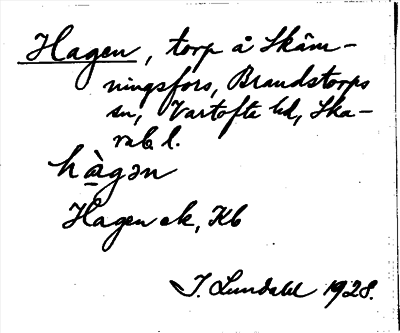 Hagen, torp å Skâm-
ningsfors, Brandstorps
sn, Vartofte hd, Ska-
rab. l.
hàgən
Hagen ek, Kb
I. Lundahl 1928.